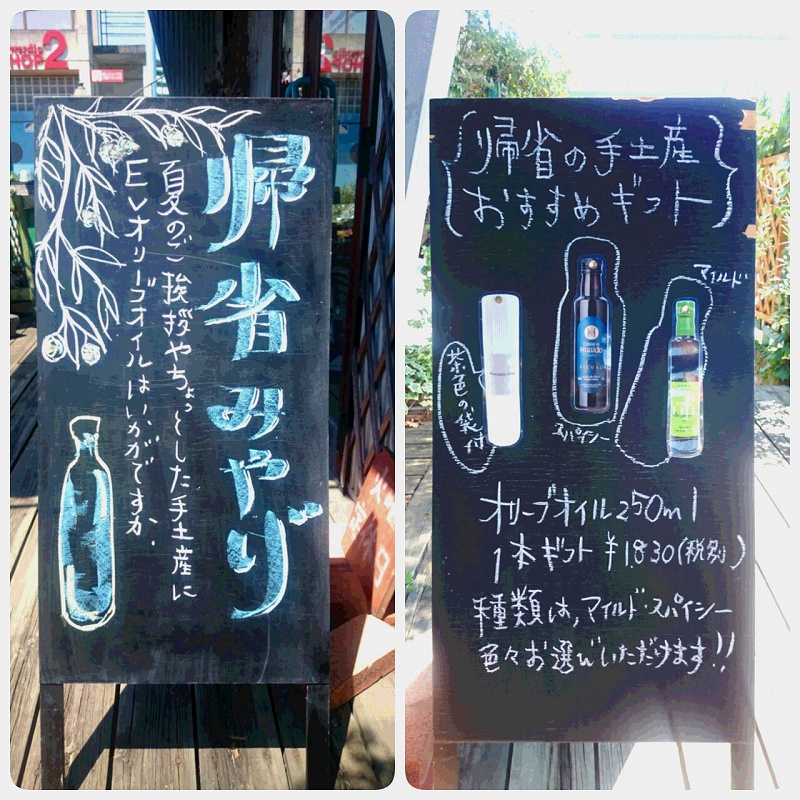 HOP 2
帰省みやげ
夏のご挨拶やちょっとした手土産に
EVオリーブオイルはいかがですか、
帰省の手土産
おすすめギフト
マイルド
茶色の袋付
スパイシー
オリーブオイル250ml
1本ギフト ¥1,830(税別)
種類は、マイルド・スパイシー
色々お選びいただけます!!